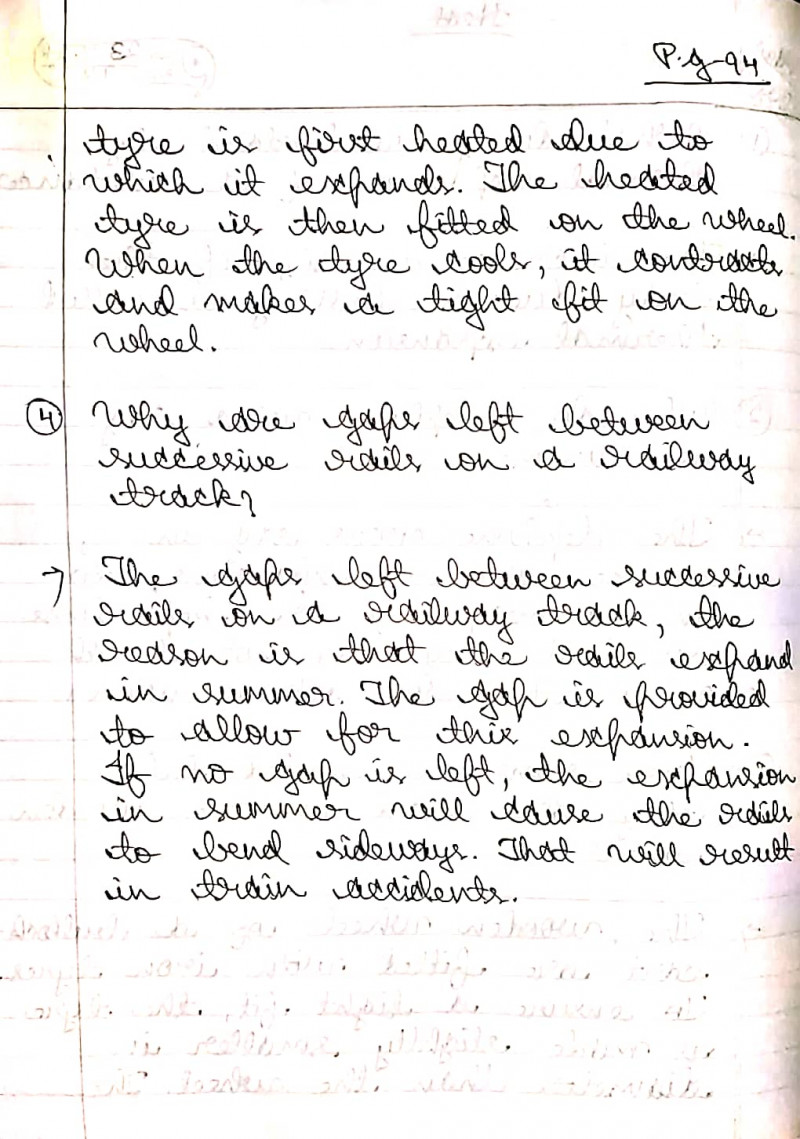 3
P.g-94
tyre is first heated due to
which it expands. The heated
tyre is then fitted on the wheel.
When the tyre cools, it contracts
and makes a tight fit on the
wheel.
4 Why are gaps left between
successive rails on a railway
track?
→ The gaps left between successive
rails on a railway track, the
reason is that the rails expand
in summer. The gap is provided
to allow for this expansion.
If no gap is left, the expansion
in summer will cause the rails
to bend sideways. That will result
in train accidents.